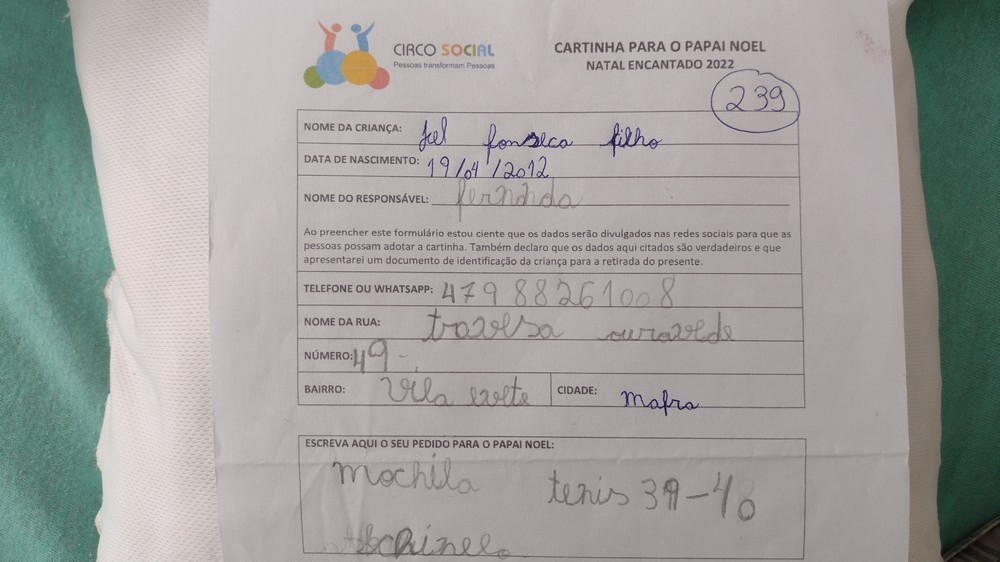 CIRCO SOCIAL
Pessoas transformam Pessoas
CARTINHA PARA O PAPAI NOEL
NATAL ENCANTADO 2022
239
NOME DA CRIANÇA: fonseca filho
DATA DE NASCIMENTO: 19/04/2012
NOME DO RESPONSÁVEL: fernanda
Ao preencher este formulário estou ciente que os dados serão divulgados nas redes sociais para que as
pessoas possam adotar a cartinha. Também declaro que os dados aqui citados são verdadeiros e que
apresentarei um documento de identificação da criança para a retirada do presente.
TELEFONE OU WHATSAPP: 47988261008
NOME DA RUA:
NÚMERO: 49
BAIRRO: Vila CIDADE: mafra
ESCREVA AQUI O SEU PEDIDO PARA O PAPAI NOEL:
mochila tenis 39-40